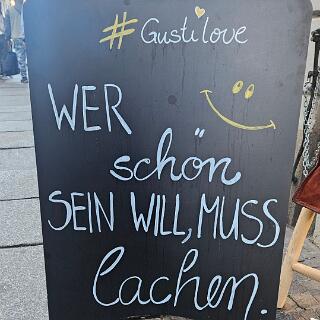 #Gustilove
WER
schön
SEIN WILL, MUSS
lachen.